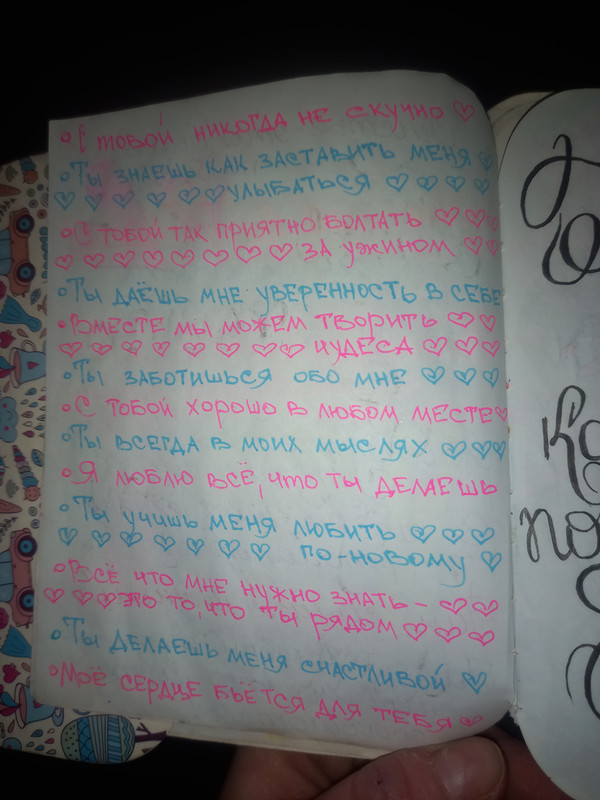 • С тобой никогда не скучно ♡
• Ты знаешь как заставить меня ♡
♡ ♡ ♡ ♡ ♡ ♡ улыбаться ♡ ♡ ♡ ♡
• С тобой так приятно болтать ♡ ♡ ♡
♡ ♡ ♡ ♡ ♡ ♡ ♡ ♡ за ужином ♡ ♡
• Ты даёшь мне уверенность в себе
• Вместе мы можем творить ♡ ♡
♡ ♡ ♡ ♡ ♡ ♡ ♡ ♡ чудеса ♡ ♡ ♡
• Ты заботишься обо мне ♡ ♡ ♡
• С тобой хорошо в любом месте ♡
• Ты всегда в моих мыслях ♡ ♡ ♡
• Я люблю всё, что ты делаешь
• Ты учишь меня любить ♡ ♡ ♡
♡ ♡ ♡ ♡ ♡ ♡ ♡ по-новому ♡
• Всё что мне нужно знать – ♡ ♡
♡ ♡ ♡ это то, что ты рядом ♡ ♡ ♡ ♡
• Ты делаешь меня счастливой ♡
• Моё сердце бьётся для тебя ♡